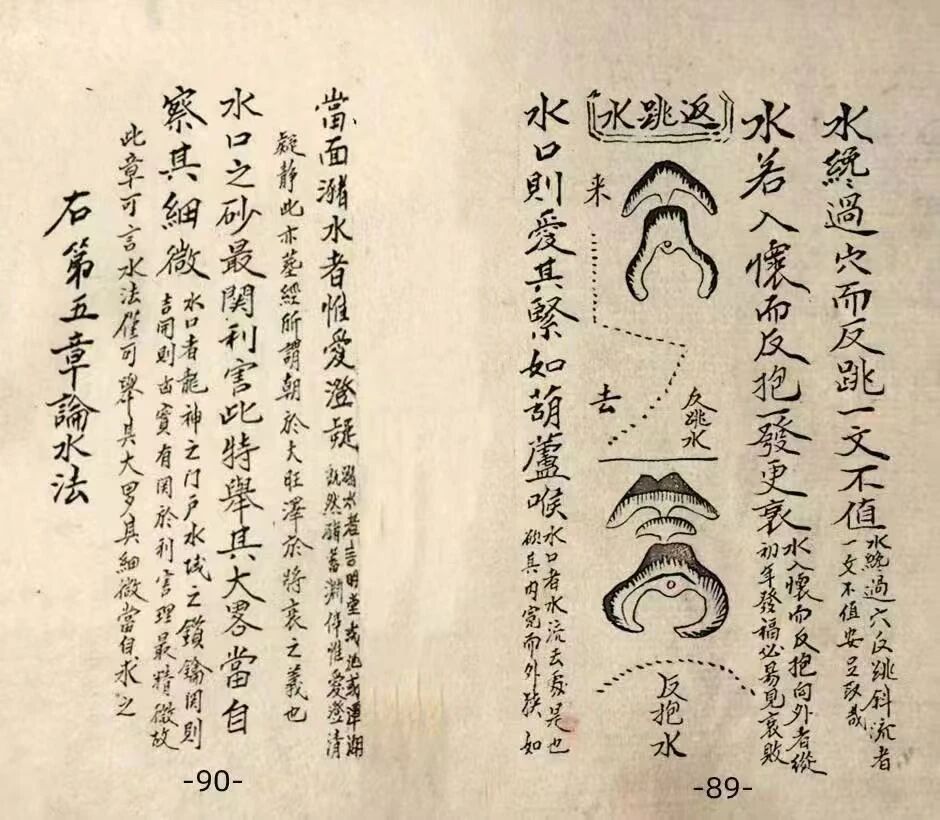 水纔過穴而反跳一文不值
水纔過穴反跳斜流者
一文不值安足取哉
水若入懷而反抱一發更衰
水入懷而反抱向外者縱
初年發福必易見衰敗
返跳水
来
去
反跳水
反抱水
水口則愛其緊如葫蘆喉
水口者水流去處是也
欲其内寬而外狹如
-89-
當面瀦水者惟愛澄凝
瀦水者言明堂或池或潭湖
既然瀦蓄淵停惟愛澄清
凝静此亦葬經所謂朝於大旺澤於將衰之義也
水口之砂最関利害此特舉其大畧當自
察其細微
水口者龍神之门户水城之鎖鑰関則
吉開則凶實有関於利害理最精微故
此章可言水法僅可舉其大畧其細微當自求之
右第五章論水法
-90-